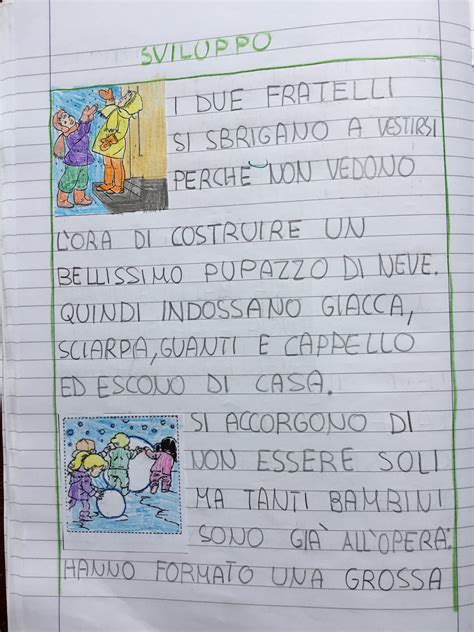 SVILUPPO
I DUE FRATELLI
SI SBRIGANO A VESTIRSI
PERCHÉ NON VEDONO
L'ORA DI COSTRUIRE UN
BELLISSIMO PUPAZZO DI NEVE.
QUINDI INDOSSANO GIACCA,
SCIARPA, GUANTI E CAPPELLO
ED ESCONO DI CASA.
SI ACCORGONO DI
NON ESSERE SOLI
MA TANTI BAMBINI
SONO GIÀ ALL'OPERA:
HANNO FORMATO UNA GROSSA